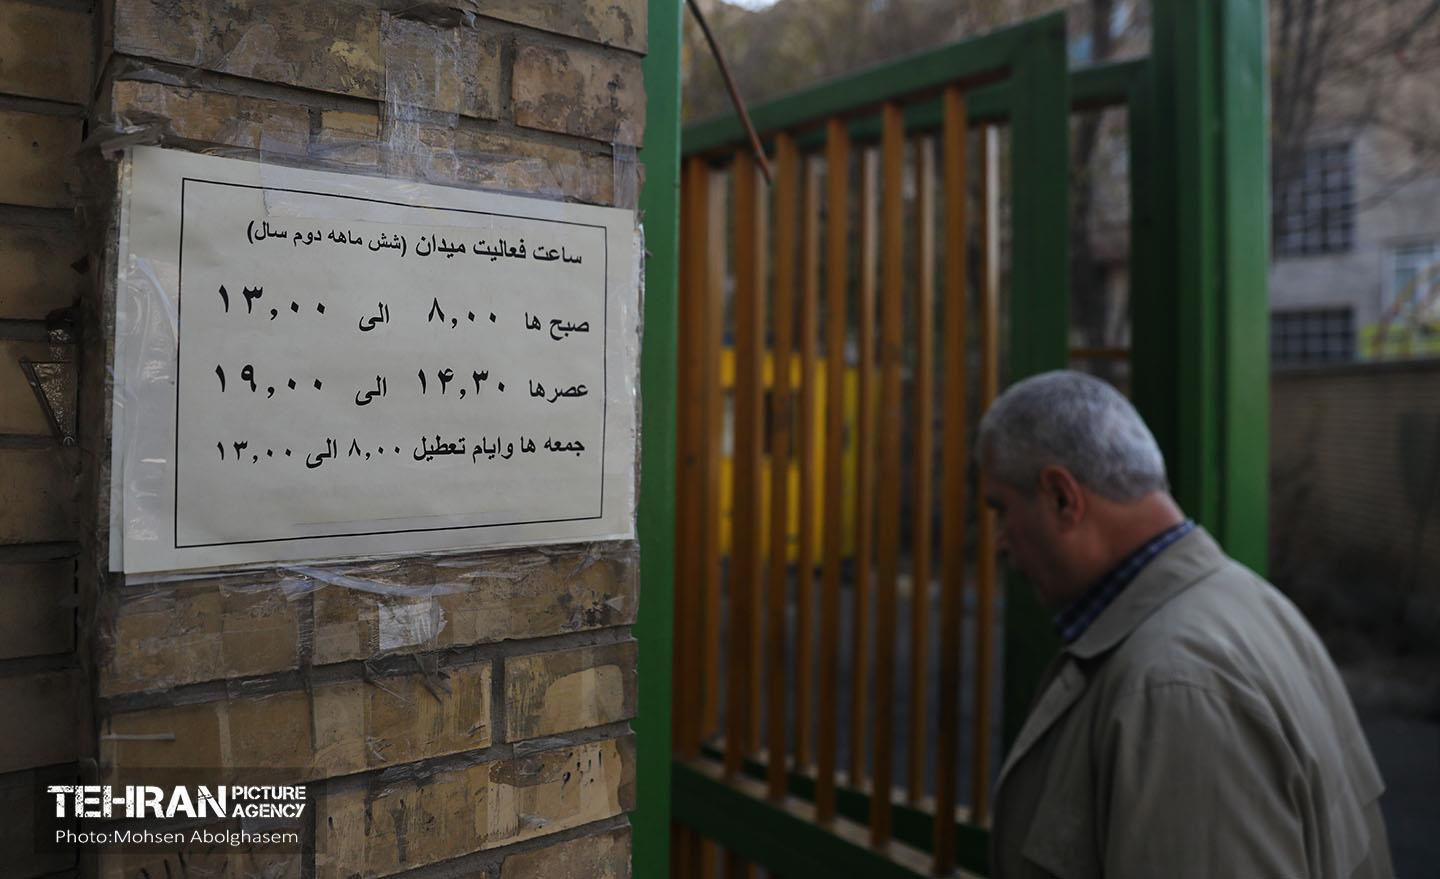 ساعت فعالیت میدان (شش ماهه دوم سال)
صبح ها ۸,۰۰ الی ۱۳,۰۰
عصرها ۱۴,۳۰ الی ۱۹,۰۰
جمعه ها وایام تعطیل ۸,۰۰ الی ۱۳,۰۰
TEHRAN PICTURE AGENCY
Photo:Mohsen Abolghasem